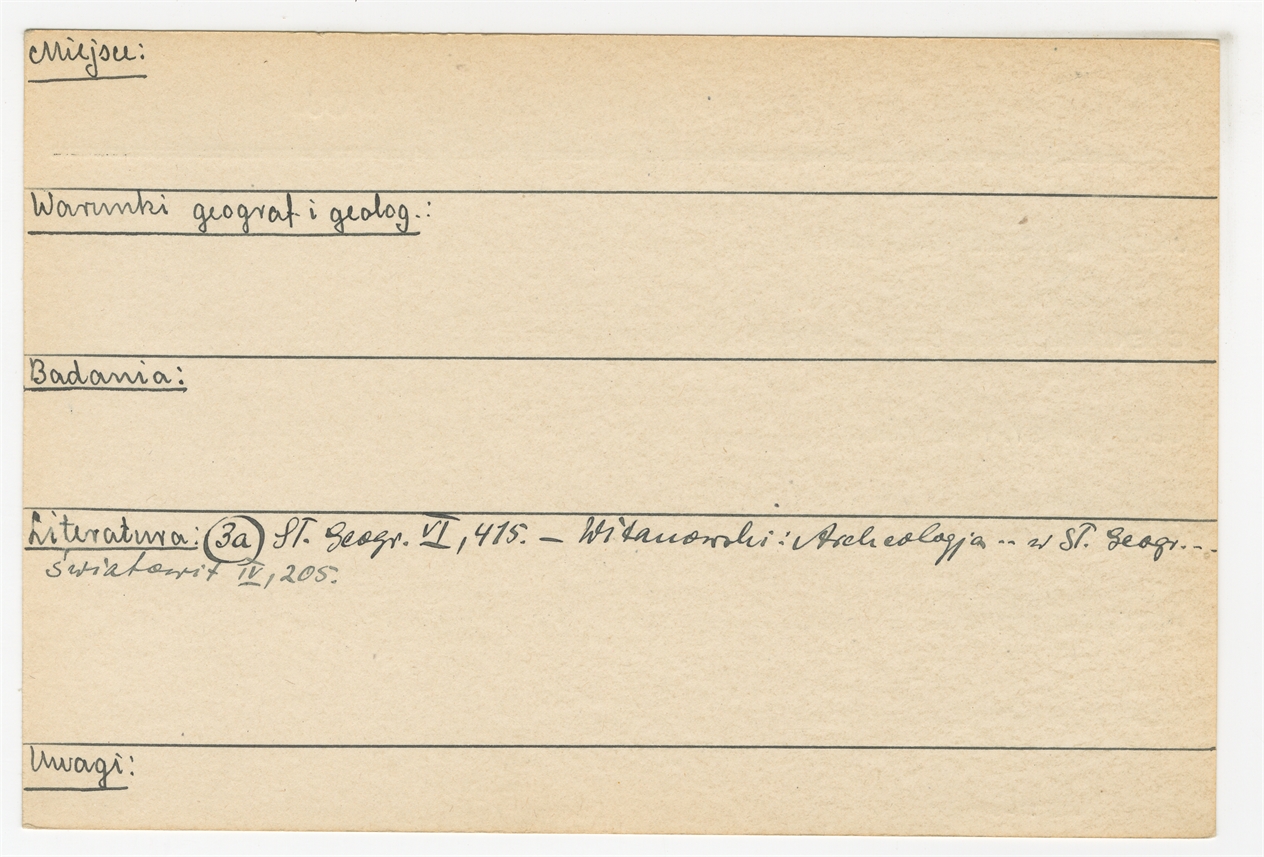 Miejsce:
Warunki geograf i geolog.:
Badania:
Literatura: (3a) Sł. Geogr. VI, 415. – Witanowski: Archeologja .. w Sł. Geogr...
Światowit IV, 205.
Uwagi: